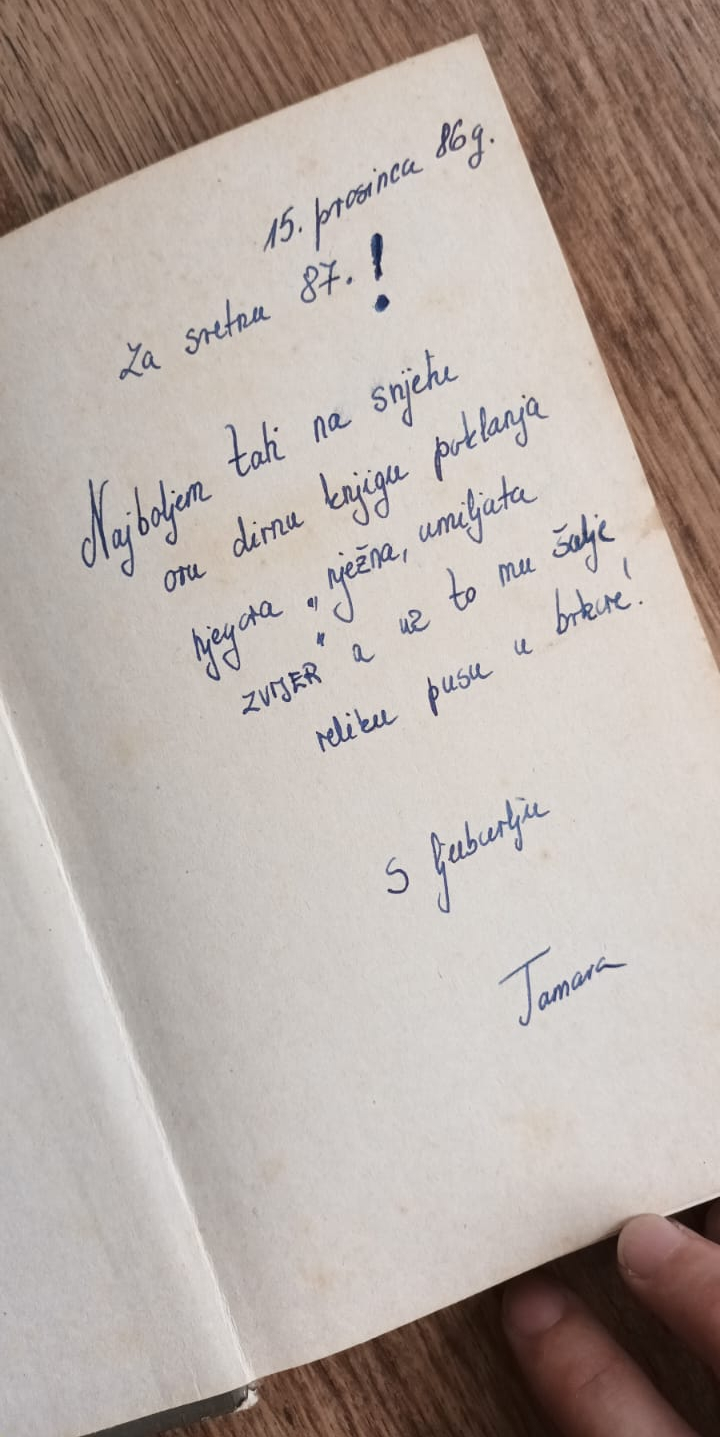 15. prosinca 86g.
Za sretnu 87. !
Najboljem tati na svijetu
ovu divnu knjigu poklanja
njegova „nježna, umiljata
ZVIJER" a uz to mu šalje
veliku pusu u brkove!
S ljubavlju
Tamara